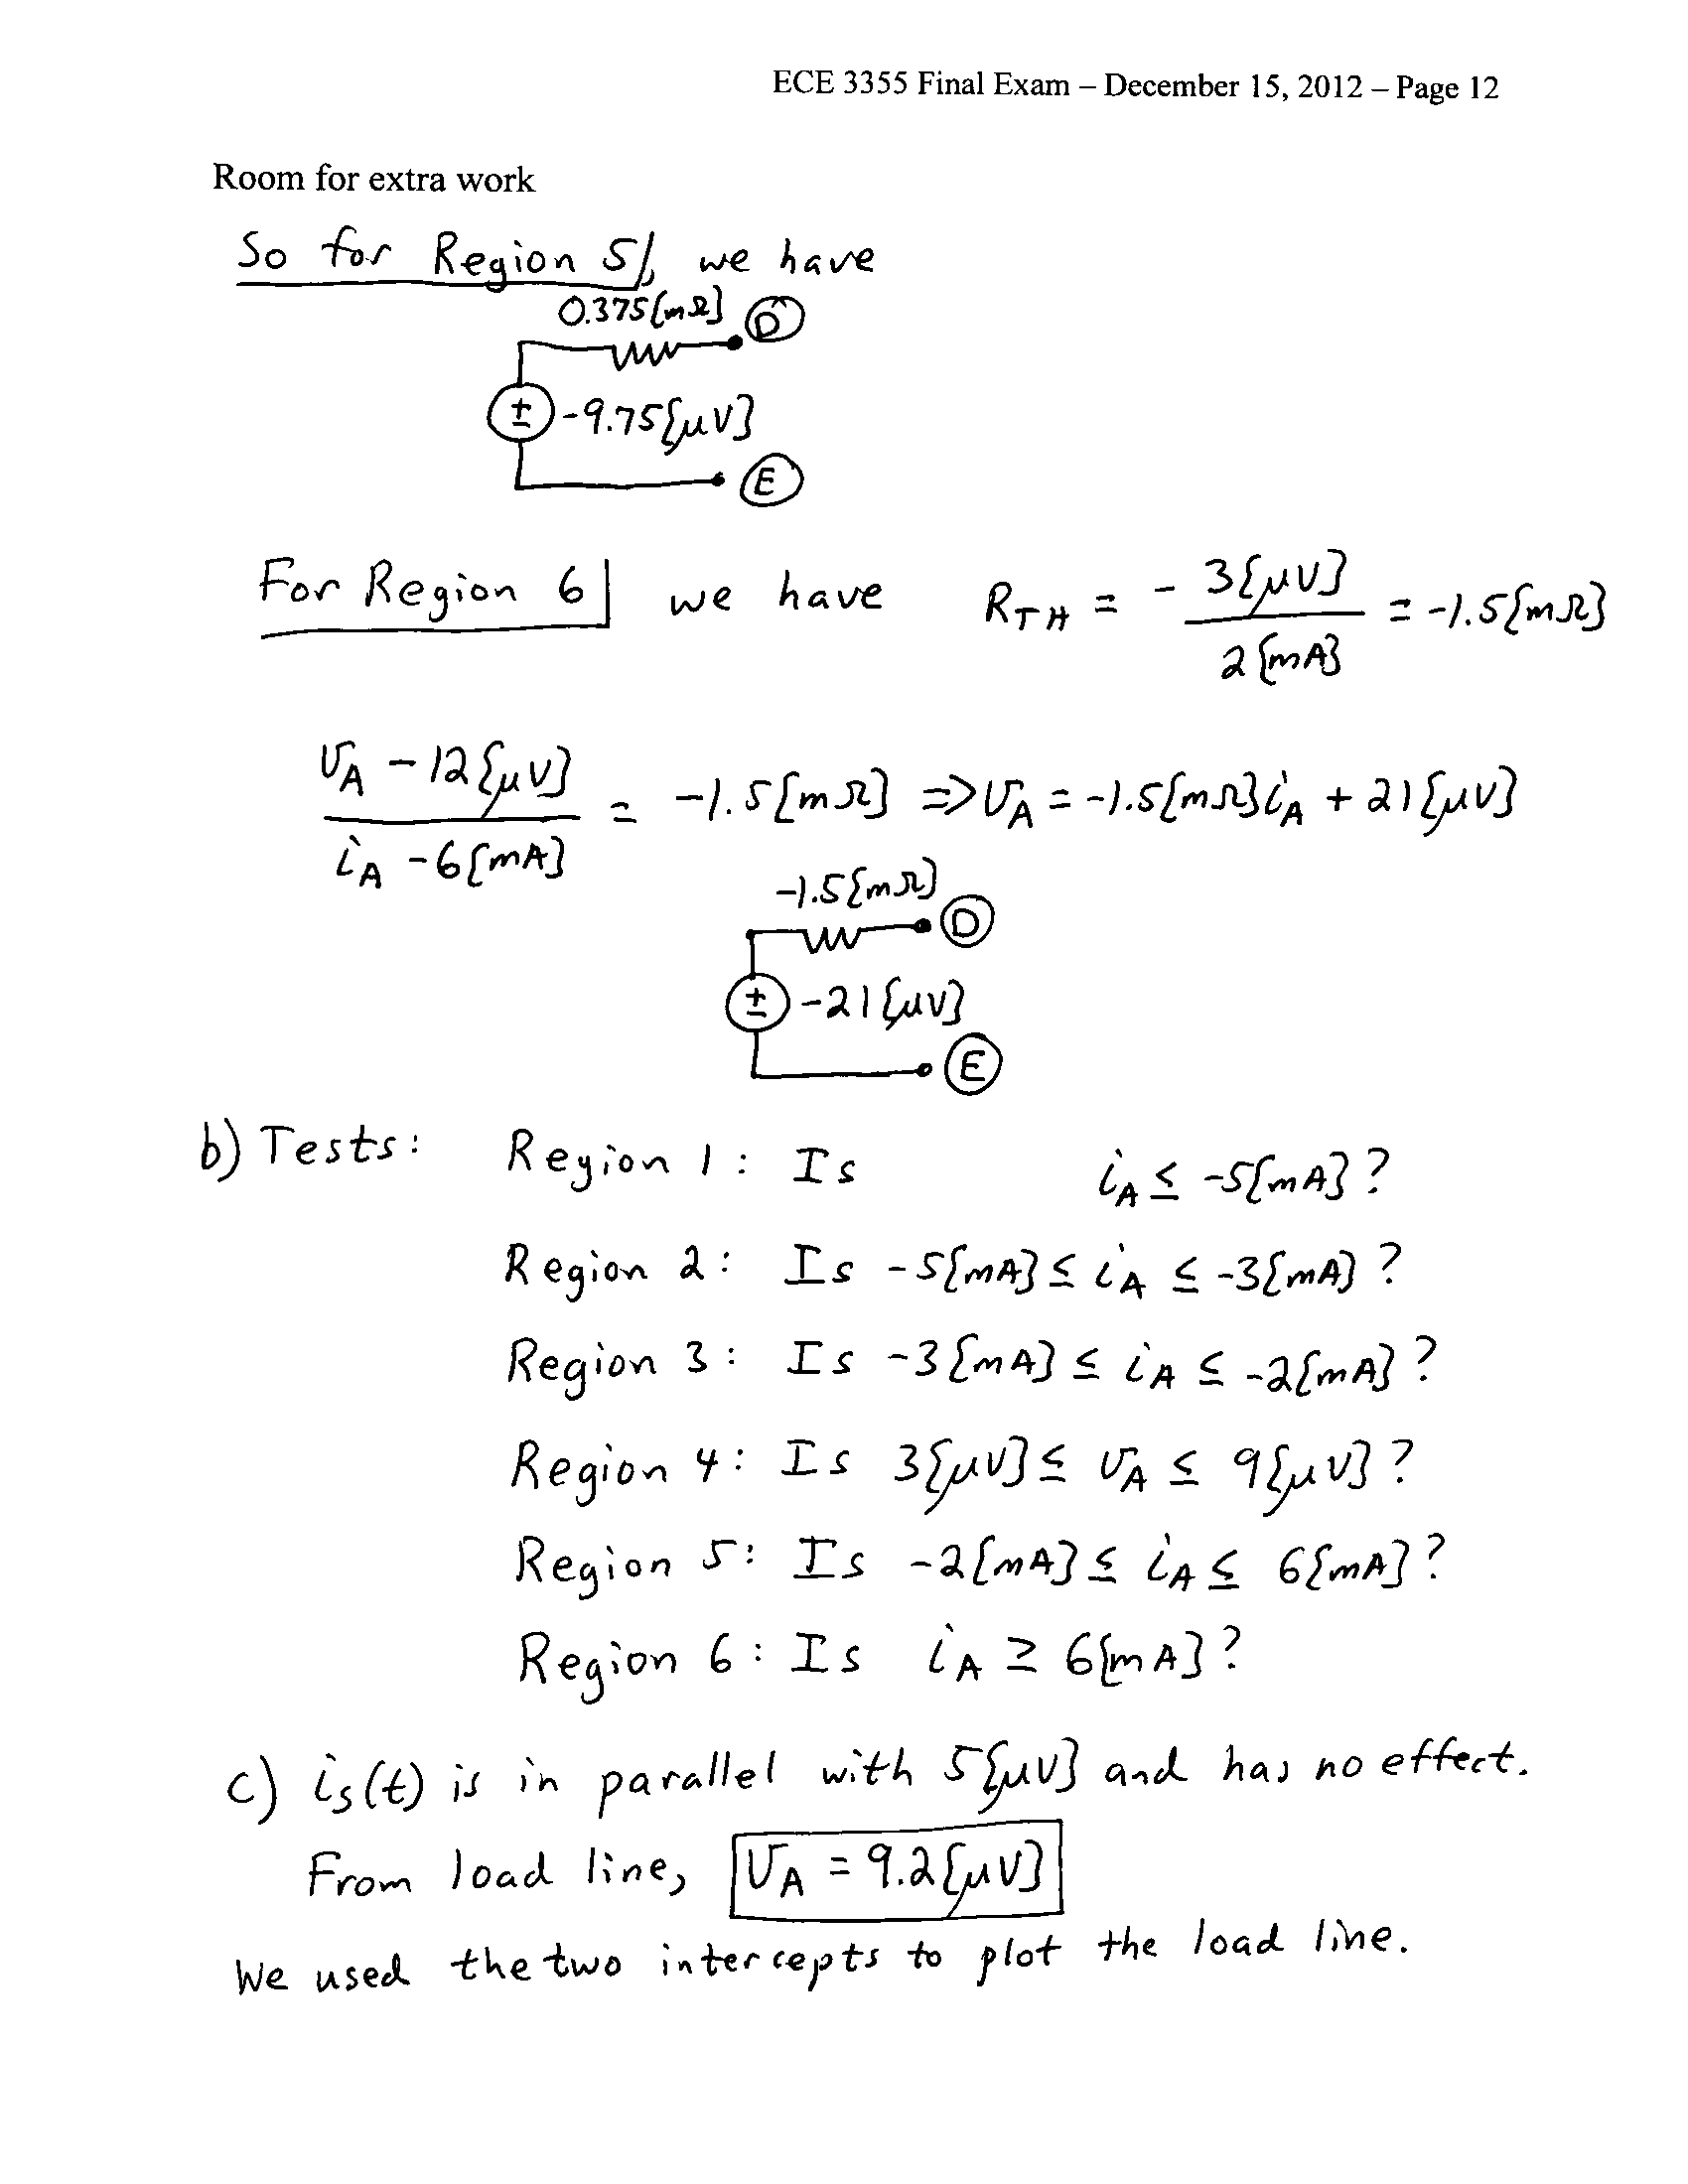 ECE 3355 Final Exam – December 15, 2012 – Page 12
Room for extra work
So for Region 5, we have
0.375[mΩ] D
± -9.75[μV]
E
For Region 6 we have R_TH = - 3[μV] / 2[mA] = -1.5[mΩ]
v_A - 12[μV] / i_A - 6[mA] = -1.5[mΩ] => v_A = -1.5[mΩ]i_A + 21[μV]
-1.5[mΩ] D
± -21[μV]
E
b) Tests: Region 1: Is i_A ≤ -5[mA]?
Region 2: Is -5[mA] ≤ i_A ≤ -3[mA]?
Region 3: Is -3[mA] ≤ i_A ≤ -2[mA]?
Region 4: Is 3[μV] ≤ v_A ≤ 9[μV]?
Region 5: Is -2[mA] ≤ i_A ≤ 6[mA]?
Region 6: Is i_A ≥ 6[mA]?
c) i_s(t) is in parallel with 5[μV] and has no effect.
From load line, v_A = 9.2[μV]
We used the two intercepts to plot the load line.